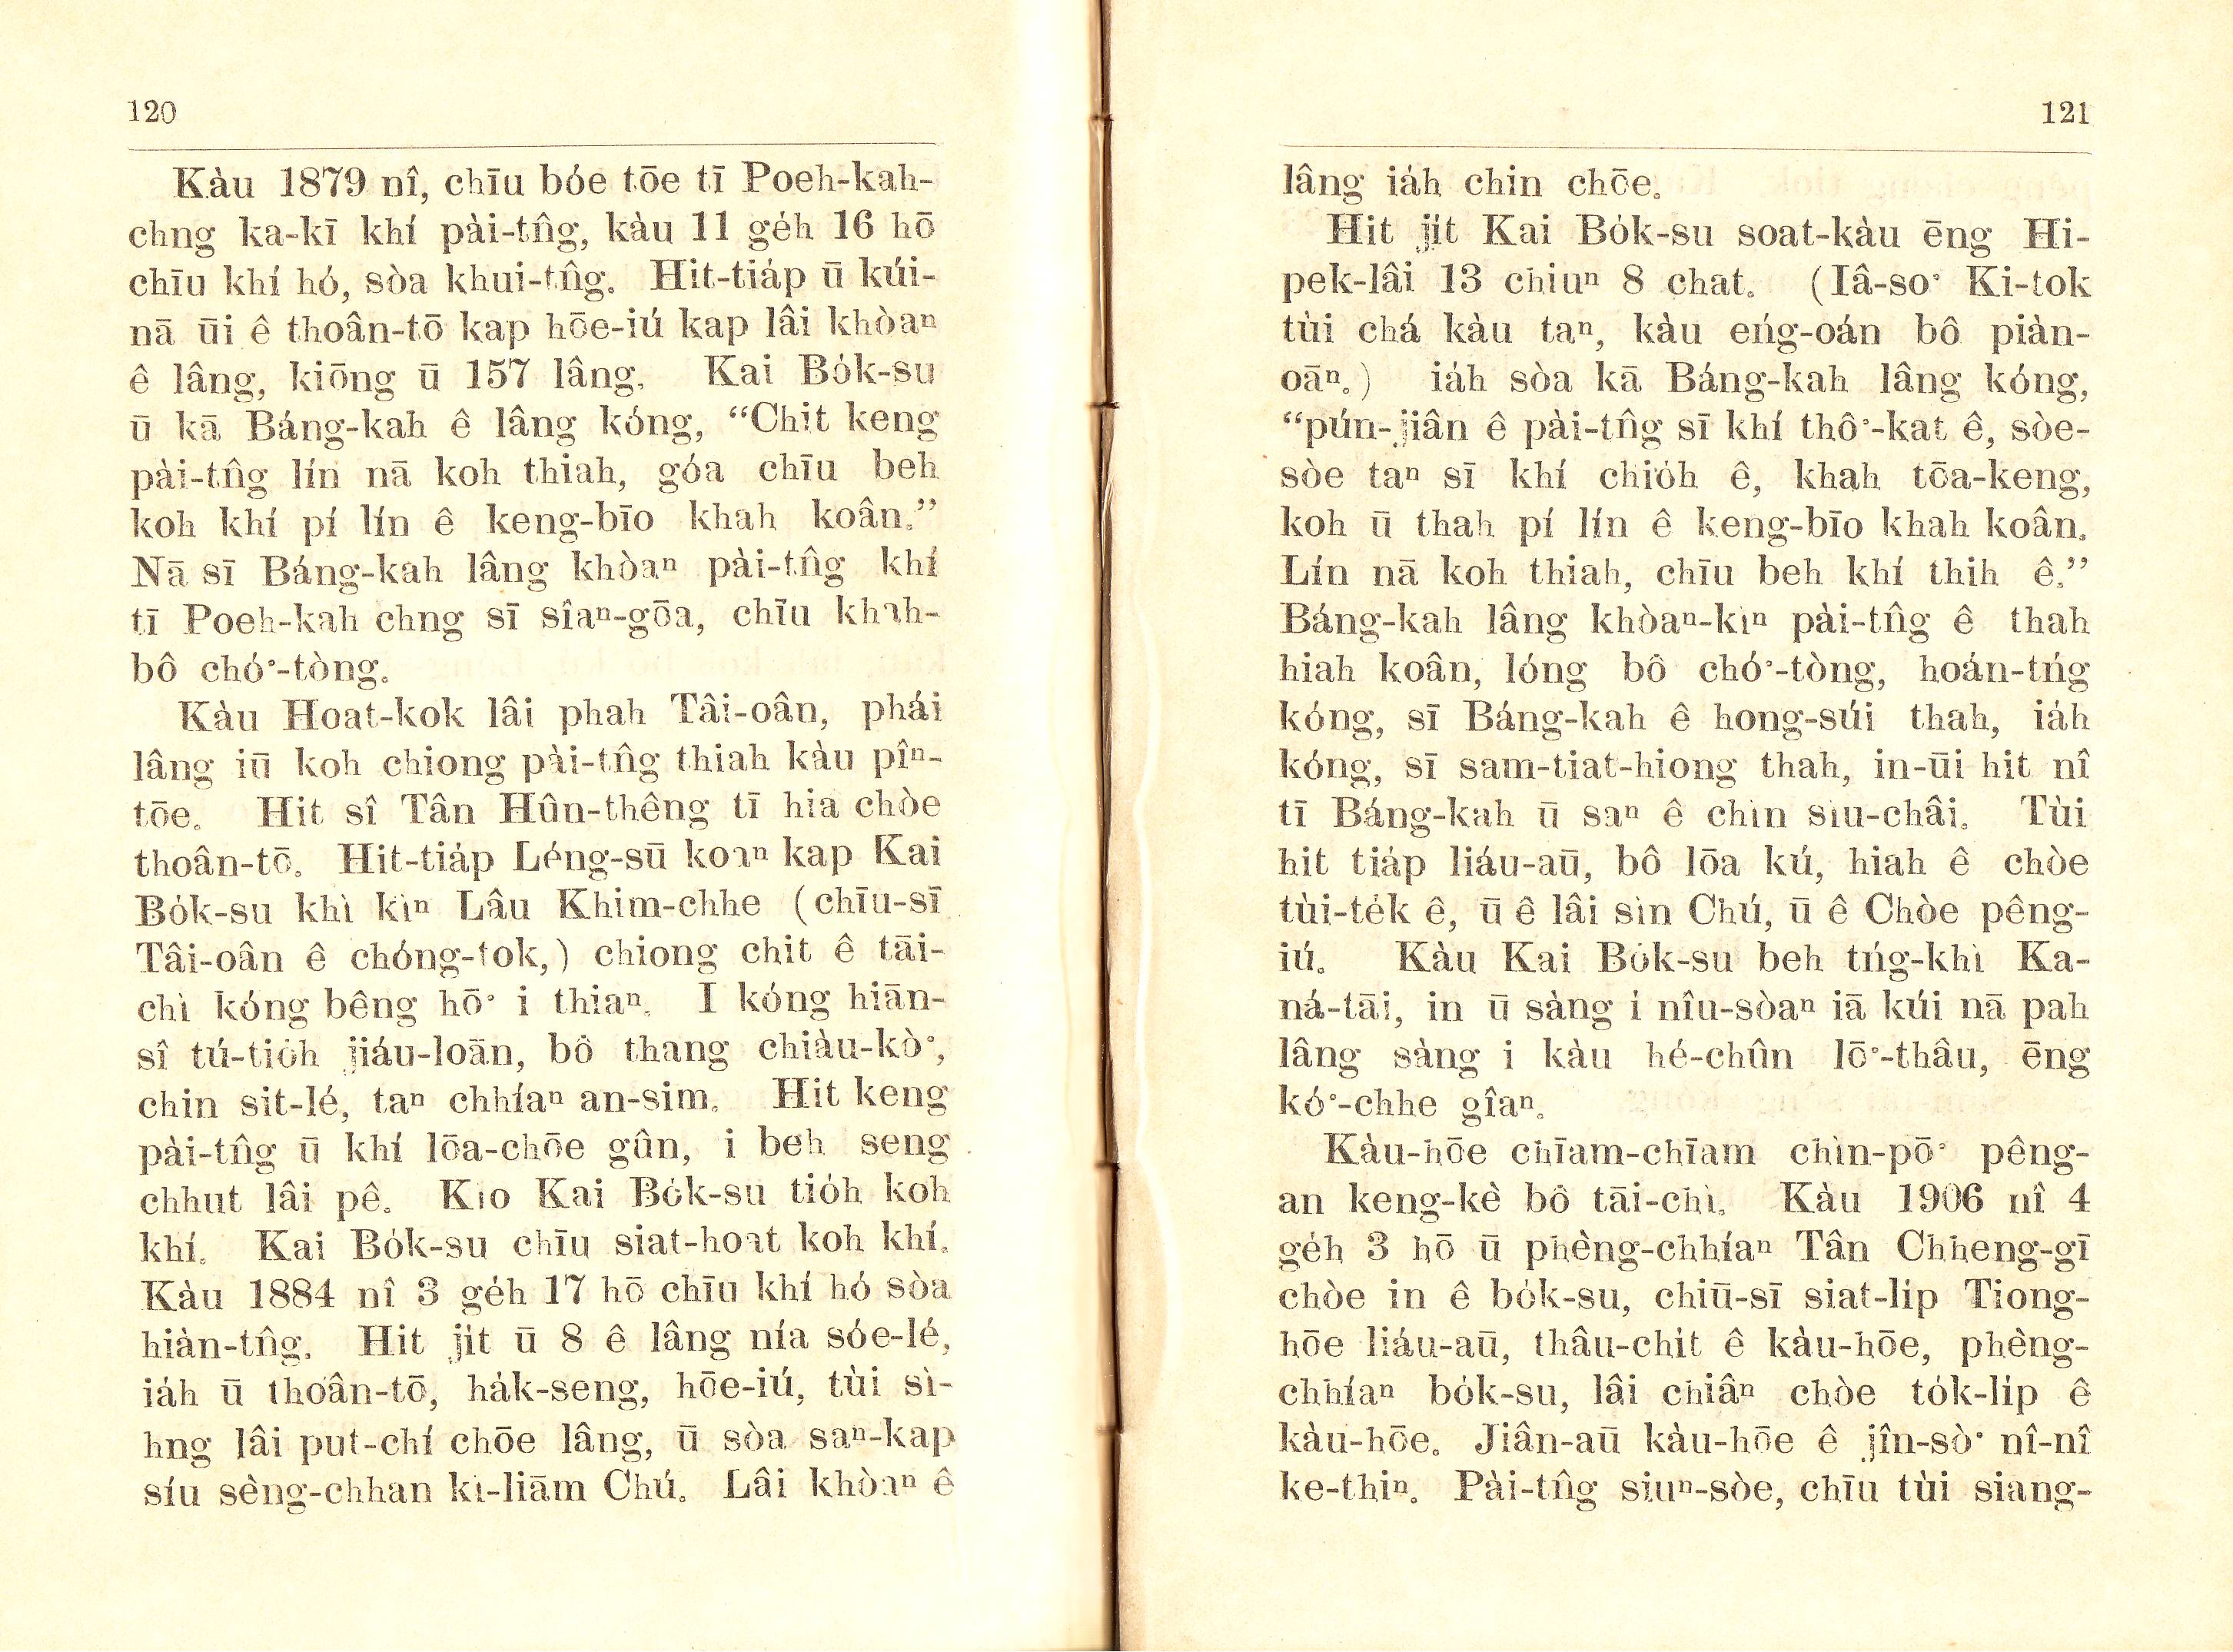 120
Kàu 1879 nî, chīu bóe tōe tī Poeh-kah-
chng ka-kī khí pài-tn̂g, kàu 11 ge̍h 16 hō
chīu khí hó, sòa khui-tn̂g. Hit-tia̍p ū kúi-
nā ūi ê thoân-tō kap hōe-iú kap lâi khòaⁿ
ê lâng, kiōng ū 157 lâng. Kai Bo̍k-su
ū kā Báng-kah ê lâng kóng, “Chit keng
pài-tn̂g lín nā koh thiah, góa chīu beh
koh khí pí lín ê keng-bīo khah koân.”
Nā sī Báng-kah lâng khòaⁿ pài-tn̂g khí
tī Poeh-kah chng sī sîaⁿ-gōa, chīu khah-
bô chó͘-tòng.
Kàu Hoat-kok lâi phah Tâi-oân, phái
lâng iū koh chiong pài-tn̂g thiah kàu pîⁿ-
tōe. Hit sî Tân Hûn-thêng tī hia chòe
thoân-tō. Hit-tia̍p Léng-sū koaⁿ kap Kai
Bo̍k-su khì kìⁿ Lâu Khim-chhe (chīu-sī
Tâi-oân ê chóng-tok,) chiong chit ê tāi-
chì kóng bêng hō͘ i thiaⁿ. I kóng hiān-
sî tú-tio̍h jiáu-loān, bô thang chiàu-kò͘,
chin sit-lé, taⁿ chhíaⁿ an-sim. Hit keng
pài-tn̂g ū khí lōa-chōe gûn, i beh seng
chhut lâi pê. Kio Kai Bo̍k-su tio̍h koh
khí. Kai Bo̍k-su chīu siat-hoat koh khí.
Kàu 1884 nî 3 ge̍h 17 hō chīu khí hó sòa
hiàn-tn̂g. Hit ji̍t ū 8 ê lâng nía sóe-lé,
ia̍h ū thoân-tō, ha̍k-seng, hōe-iú, tùi sì-
hng lâi put-chí chōe lâng, ū sòa saⁿ-kap
síu sèng-chhan kì-liām Chú. Lâi khòaⁿ ê
121
lâng ia̍h chin chōe.
Hit ji̍t Kai Bo̍k-su soat-kàu ēng Hi-
pek-lâi 13 chiuⁿ 8 chat. (Iâ-so͘ Ki-tok
tùi chá kàu taⁿ, kàu éng-oán bô piàn-
oāⁿ.) ia̍h sòa kā Báng-kah lâng kóng,
“pún-jiân ê pài-tn̂g sī khí thô͘-kat ê, sòe-
sòe taⁿ sī khí chio̍h ê, khah tōa-keng,
koh ū thah pí lín ê keng-bīo khah koân.
Lín nā koh thiah, chīu beh khí thih ê.”
Báng-kah lâng khòaⁿ-kìⁿ pài-tn̂g ê thah
hiah koân, lóng bô chó͘-tòng, hoán-tńg
kóng, sī Báng-kah ê hong-súi thah, ia̍h
kóng, sī sam-tiat-hiong thah, in-ūi hit nî
tī Báng-kah ū saⁿ ê chìn siu-châi. Tùi
hit tia̍p liáu-aū, bô lōa kú, hiah ê chòe
tùi-te̍k ê, ū ê lâi sìn Chú, ū ê Chòe pêng-
iú. Kàu Kai Bo̍k-su beh tńg-khì Ka-
ná-tāi, in ū sàng i nîu-sòaⁿ iā kúi nā pah
lâng sàng i kàu hé-chûn lō͘-thâu, ēng
kó͘-chhe gîaⁿ.
Kàu-hōe chīam-chīam chìn-pō͘ pêng-
an keng-kè bô tāi-chì. Kàu 1906 nî 4
ge̍h 3 hō ū phèng-chhíaⁿ Tân Chheng-gī
chòe in ê bo̍k-su, chiū-sī siat-li̍p Tiong-
hōe liáu-aū, thâu-chi̍t ê kàu-hōe, phèng-
chhíaⁿ bo̍k-su, lâi chiâⁿ chòe to̍k-li̍p ê
kàu-hōe. Jiân-aū kàu-hōe ê jîn-sò͘ nî-nî
ke-thiⁿ. Pài-tn̂g siuⁿ-sòe, chīu tùi siang-